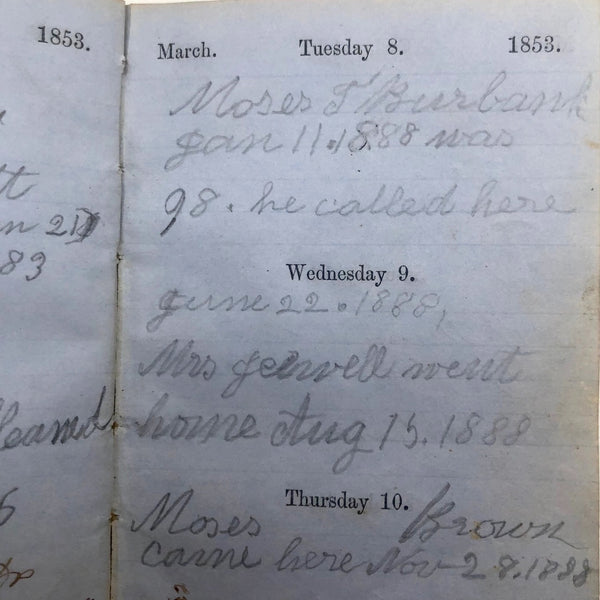 1853.
tt
n 21
83
March. Tuesday 8. 1853.
Moses T Burbank
Jan 11.1888 was
98. he called here
Wednesday 9.
June 22.1888,
Mrs Jewell went
home Aug 15.1888
Thursday 10.
Moses Brown
came here Nov 28.1888